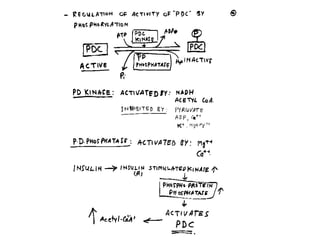 - REGULATION OF ACTIVITY OF "PDC" BY
PHOSPHORYLATION
ATP PDC KINASE ADP
P
PDC PDC
ACTIVE INACTIVE
PD PHOSPHATASE H₂O
Pi
PD KINASE: ACTIVATED BY: NADH
ACETYL CoA
INHIBITED BY: PYRUVATE
ADP, Ca²⁺
P.D. PHOSPHATASE: ACTIVATED BY: Mg²⁺
Ca²⁺
INSULIN → INSULIN STIMULATED KINASE ↑
PHOSPHO PROTEIN
PHOSPHATASE ↑
ACTIVATES
↑ Acetyl-CoA ← PDC